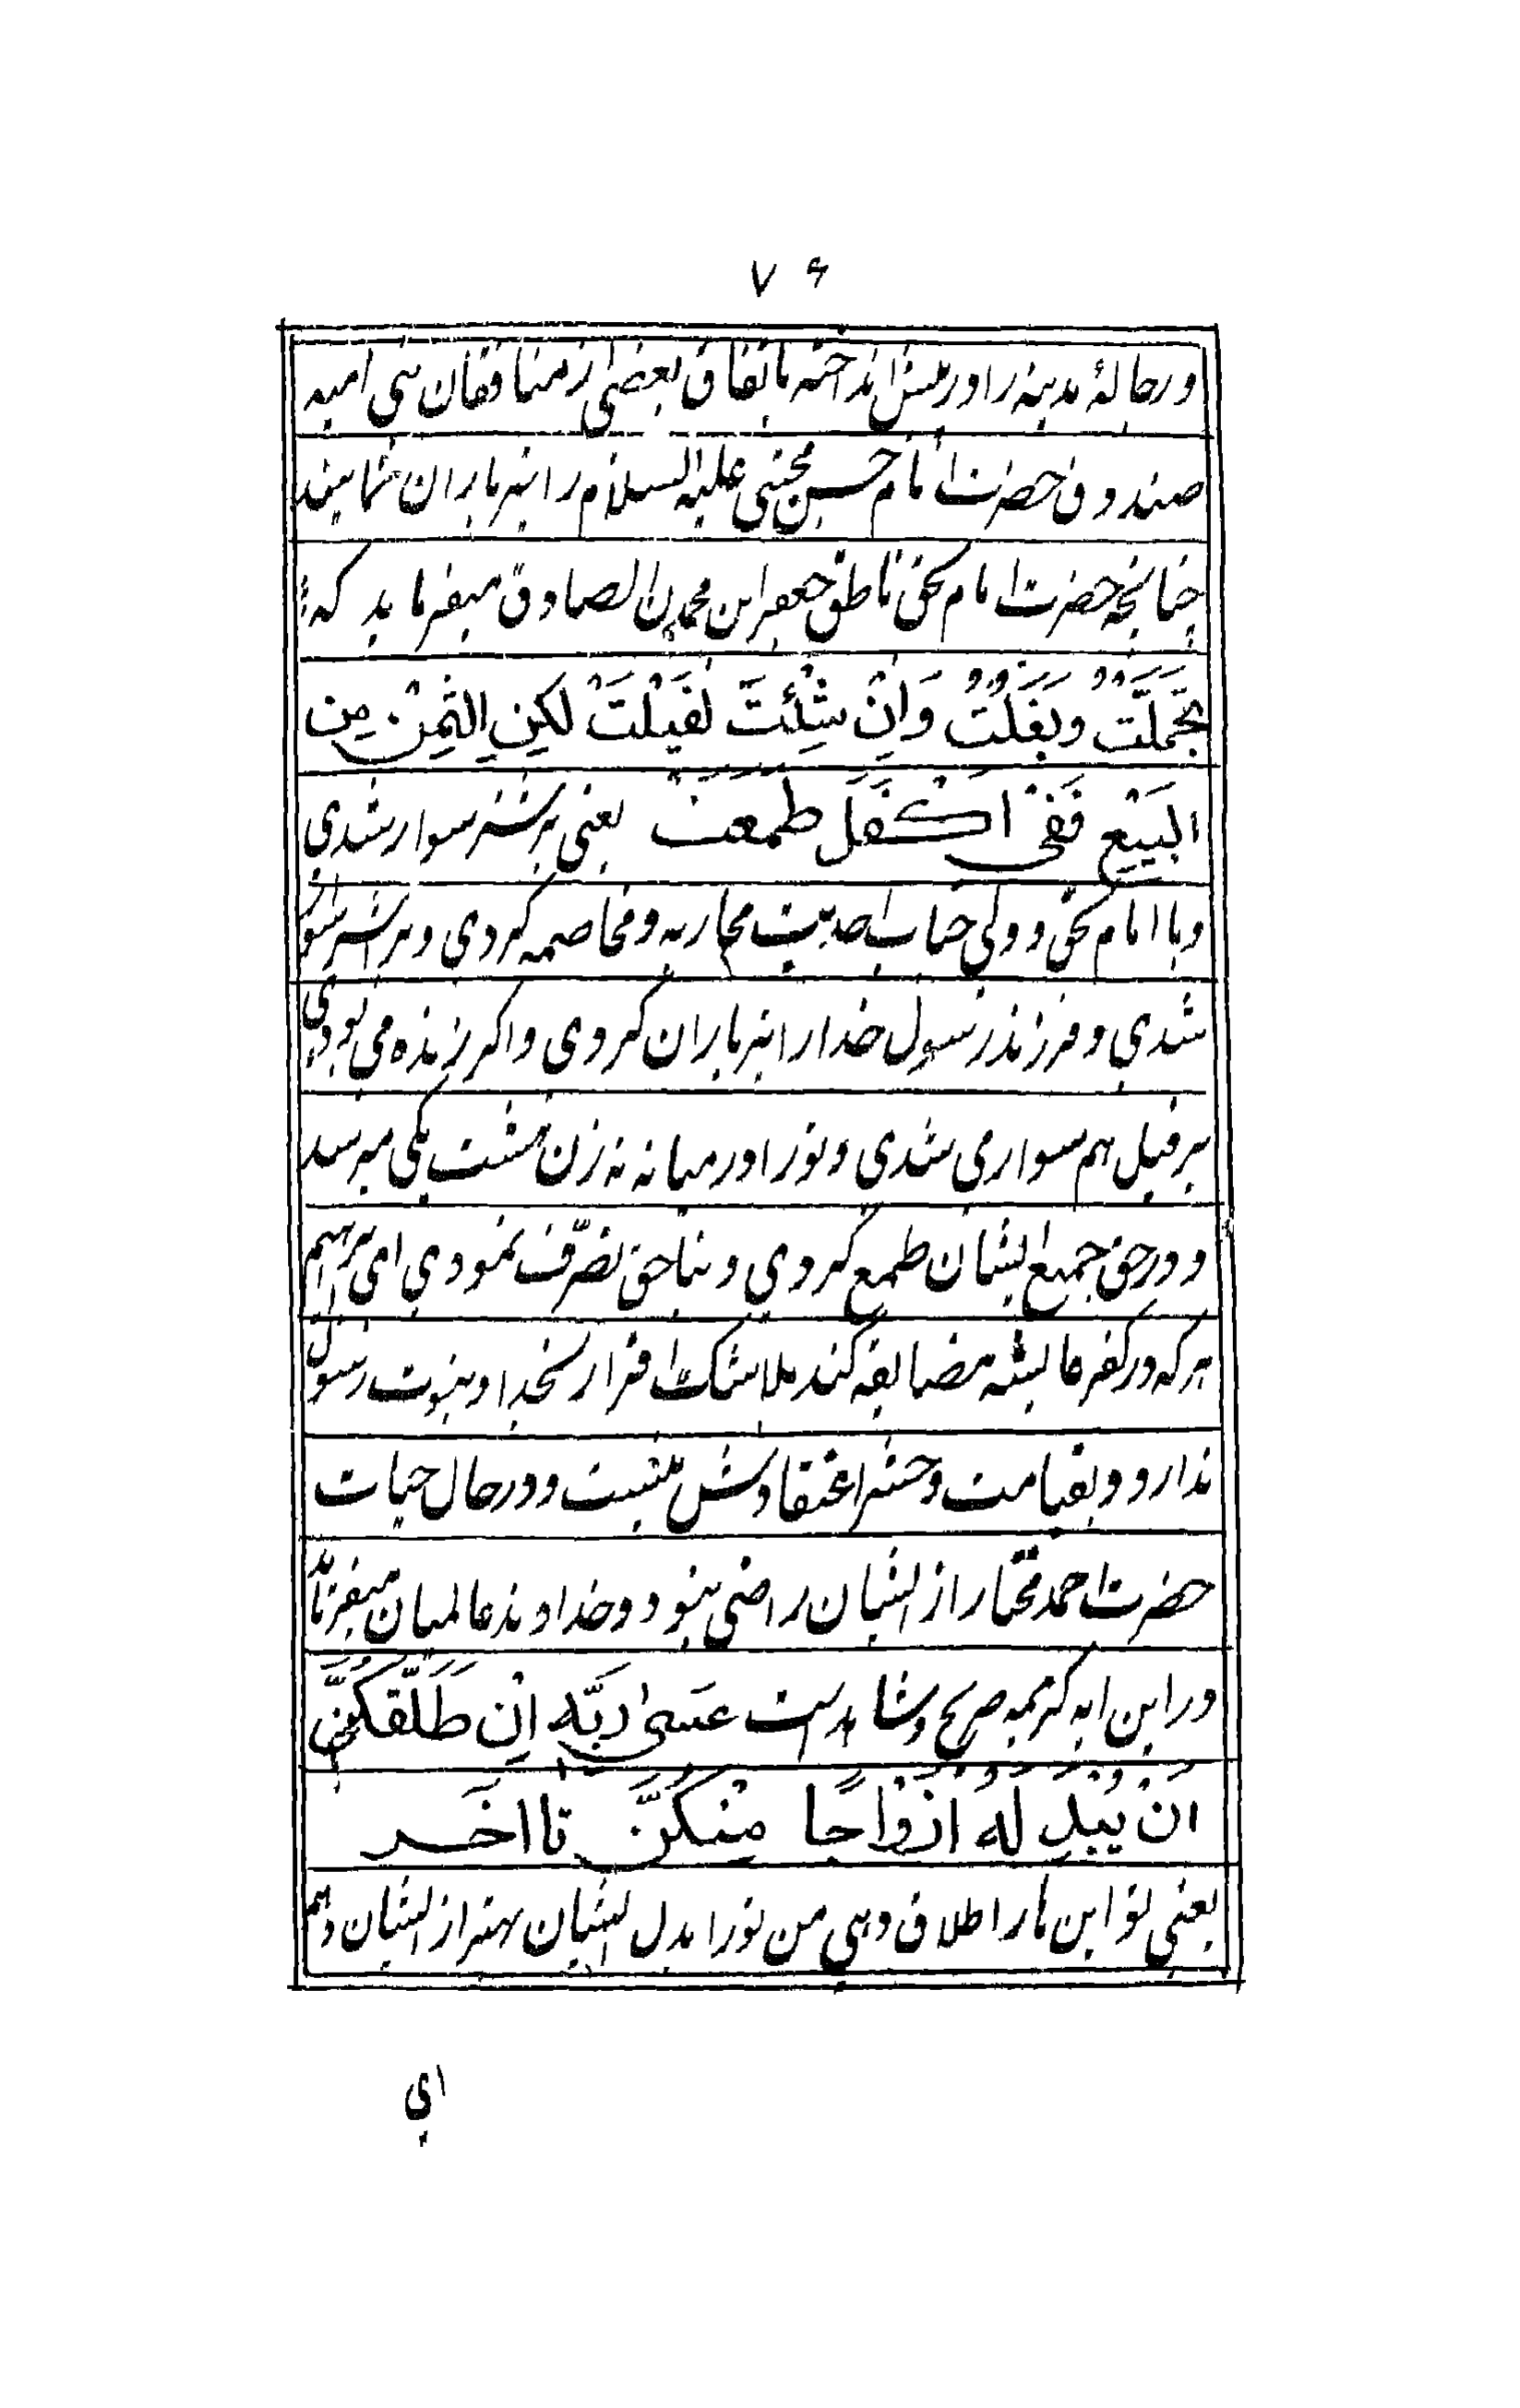 ۷۶
و رجالهٔ مدینه را در پیش انداخته باتفاق بعضی از منافقان بنی امیه
صندوق حضرت امام حسن مجتبی علیه السلام را تیر باران نمایند
چنانچه حضرت امام بحق ناطق جعفر ابن محمدن الصادق میفرماید که
تَجَمَّلَتْ وتَبَغَّلَتْ وَاِنْ شِئْتَ تَفَيَّلَتْ لكِنِ الثُمِنْ مِن
البَيْعِ فَفِى اكفَّلَ طمعت یعنی بر شتر سوار شدی
و با امام بحق و ولی جناب احدیت محاربه و مخاصمه کردی و بر استر سوار
شدی و فرزند رسول خدا را تیر باران کردی و اکر زنده می بودی
بر فیل هم سوار می شدی و تو را در میانه نه زن هشت یکی میرسد
و در حق جمیع ایشان طمع کردی و بناحق تصرّف نمودی ای برادرم
هر که در کفر عایشه مضایقه کند بلا شک اقرار بخدا و بنبوت رسول
ندارد و بقیامت و حشر اعتقادش نیست و در حال حیات
حضرت احمد مختار از ایشان راضی نبود و خداوند عالمیان میفرماید
در این ایه کریمه صریح و شاهد است عَسىٰ رَبَّه اِن طَلَّقَكُنَّ
اَنْ يُبْدِلَ لَهُ اَزْوٰاجًا مِنْكُنَّ تا اخَر
یعنی تو این ها را طلاق دهی من تو را بدل ایشان بهتر از ایشان دهم
ای